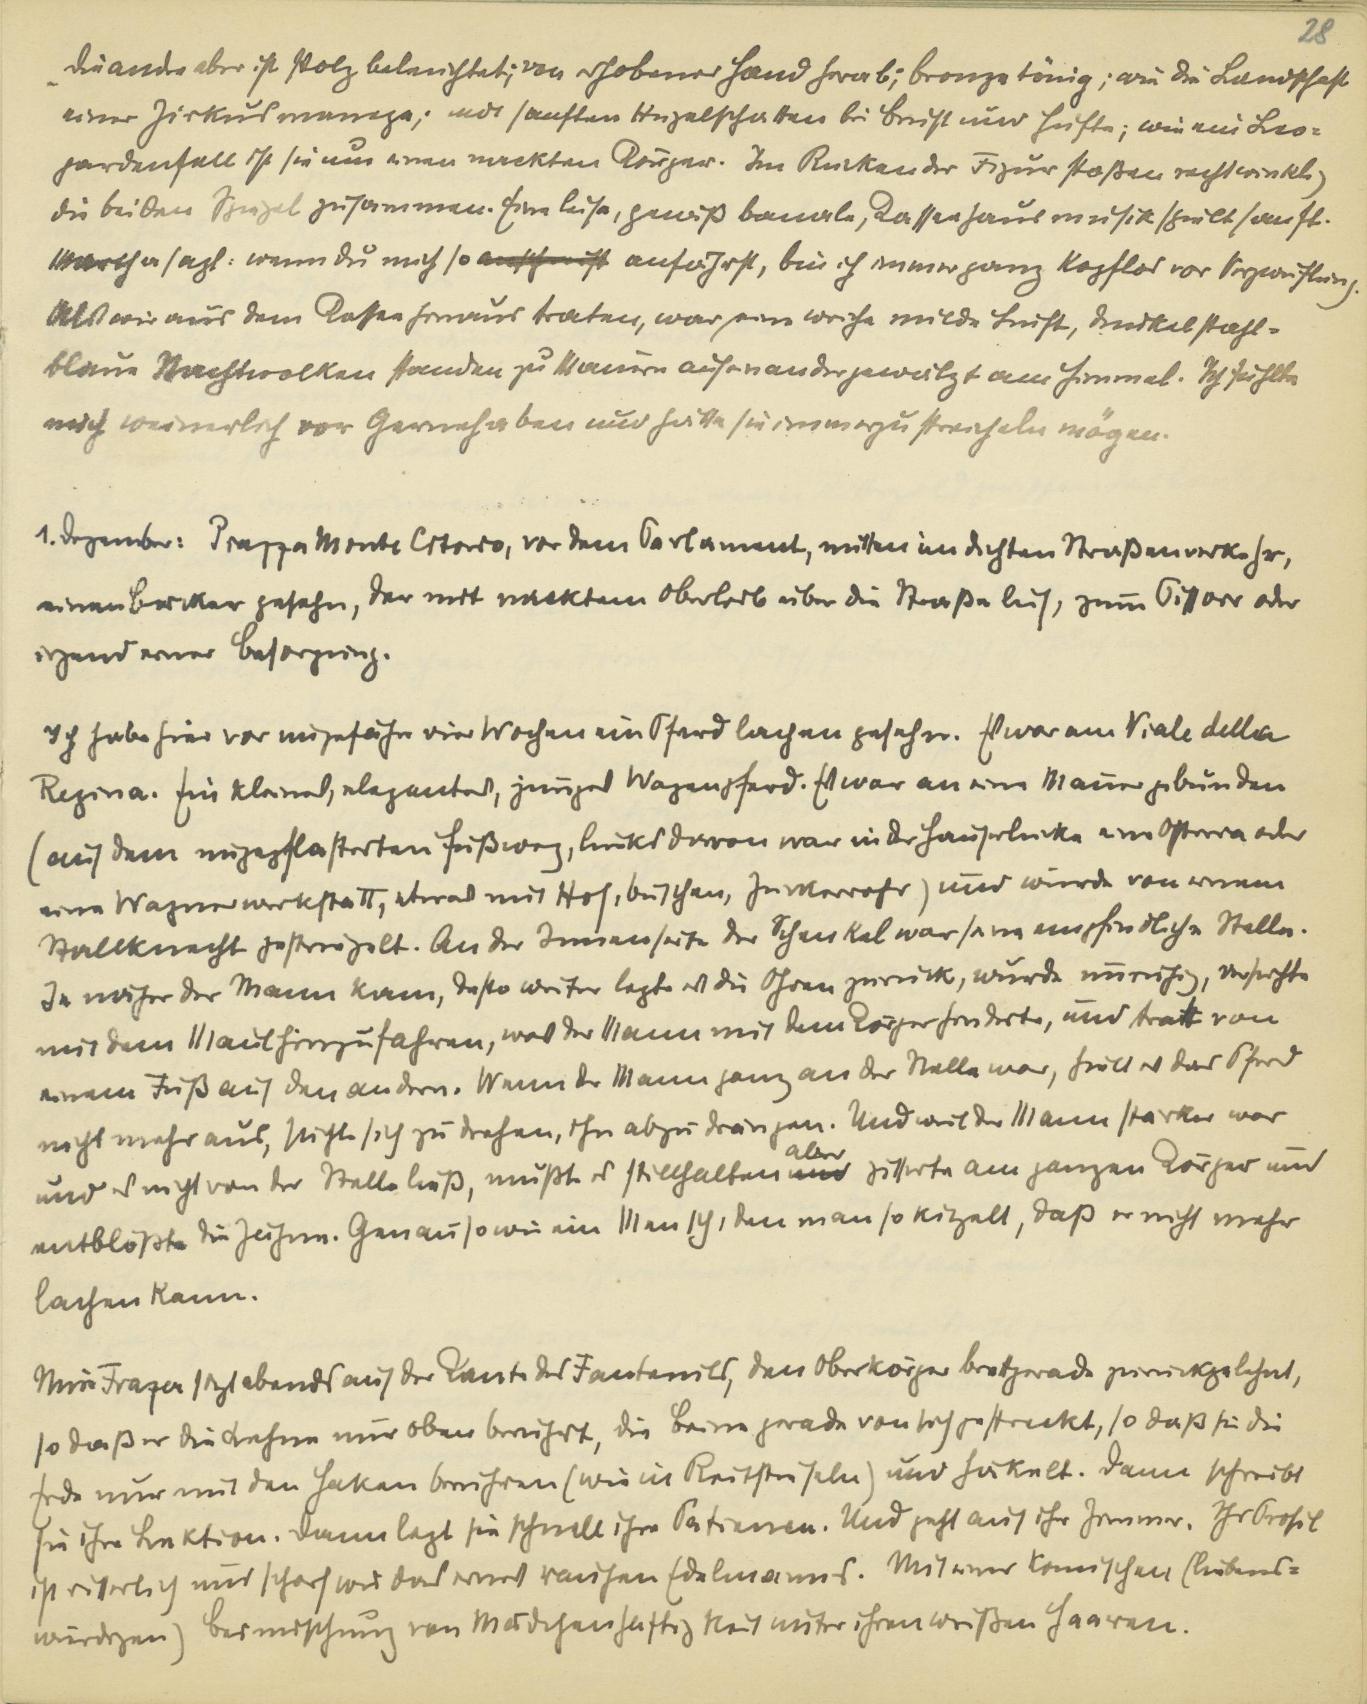 28
die andre aber ist stolz beleuchtet; von erhobener Hand herab; bronzetönig; wie die Landschaft
einer Zirkusmanege; mit sanften Hügelschatten bei Brust und Hüfte; wie ein Leo-
pardenfell ist sie um einen nackten Körper. Im Rücken der Figur stoßen rechtwinklig
die beiden Spiegel zusammen. Eine leise, gewiß banale, Kaffeehausmusik spielt sanft.
Martha sagt: wenn du mich so anfährst, bin ich immer ganz kopflos vor Verzweiflung.
Als wir aus dem Kaffee hinaus traten, war eine weiche milde Luft, dunkelstahl-
blaue Nachtwolken standen zu Mauern aufeinandergewälzt am Himmel. Ich fühlte
mich weinerlich vor Gernehaben und hätte sie immerzu streicheln mögen.
1. Dezember: Piazza Monte Citorio, vor dem Parlament, mitten im dichten Straßenverkehr,
einen Bäcker gesehn, der mit nacktem Oberleib über die Straße lief, zum Pissoir oder
irgend einer Besorgung.
Ich habe hier vor ungefähr vier Wochen ein Pferd lachen gesehn. Es war am Viale della
Regina. Ein kleines, elegantes, junges Wagenpferd. Es war an eine Mauer gebunden
(auf dem ungepflasterten Fußweg, links davon war in der Häuserlücke eine Osteria oder
eine Wagnerwerkstatt, etwas mit Hof, Büschen, Zuckerrohr) und wurde von einem
Stallknecht gestriegelt. An der Innenseite der Schenkel war seine empfindliche Stelle.
Je näher der Mann kam, desto weiter legte es die Ohren zurück, wurde unruhig, versuchte
mit dem Maul hinzufahren, was der Mann mit dem Körper hinderte, und tratt von
einem Fuß auf den andern. Wenn der Mann ganz an der Stelle war, hielt es das Pferd
nicht mehr aus, suchte sich zu drehen, ihn abzudrängen. Und weil der Mann stärker war
und es nicht von der Stelle ließ, mußte es stillhalten und aber zitterte am ganzen Körper und
entblößte die Zähne. Genau so wie ein Mensch, den man so kitzelt, daß er nicht mehr
lachen kann.
Miss Frazer sitzt abends auf der Kante des Fauteuils, den Oberkörper brettgerade zurückgelehnt,
so daß er die Lehne nur oben berührt, die Beine gerade von sich gestreckt, so daß sie die
Erde nur mit den Haken berühren (wie in Reitstiefeln) und häkelt. Dann schreibt
sie ihre Lektion. Dann legt sie schnell ihre Patiencen. Und geht auf ihr Zimmer. Ihr Profil
ist ritterlich und scharf wie das eines rauhen Edelmanns. Mit einer komischen (liebens-
würdigen) Beimischung von Mädchenhaftigkeit unter ihren weißen Haaren.